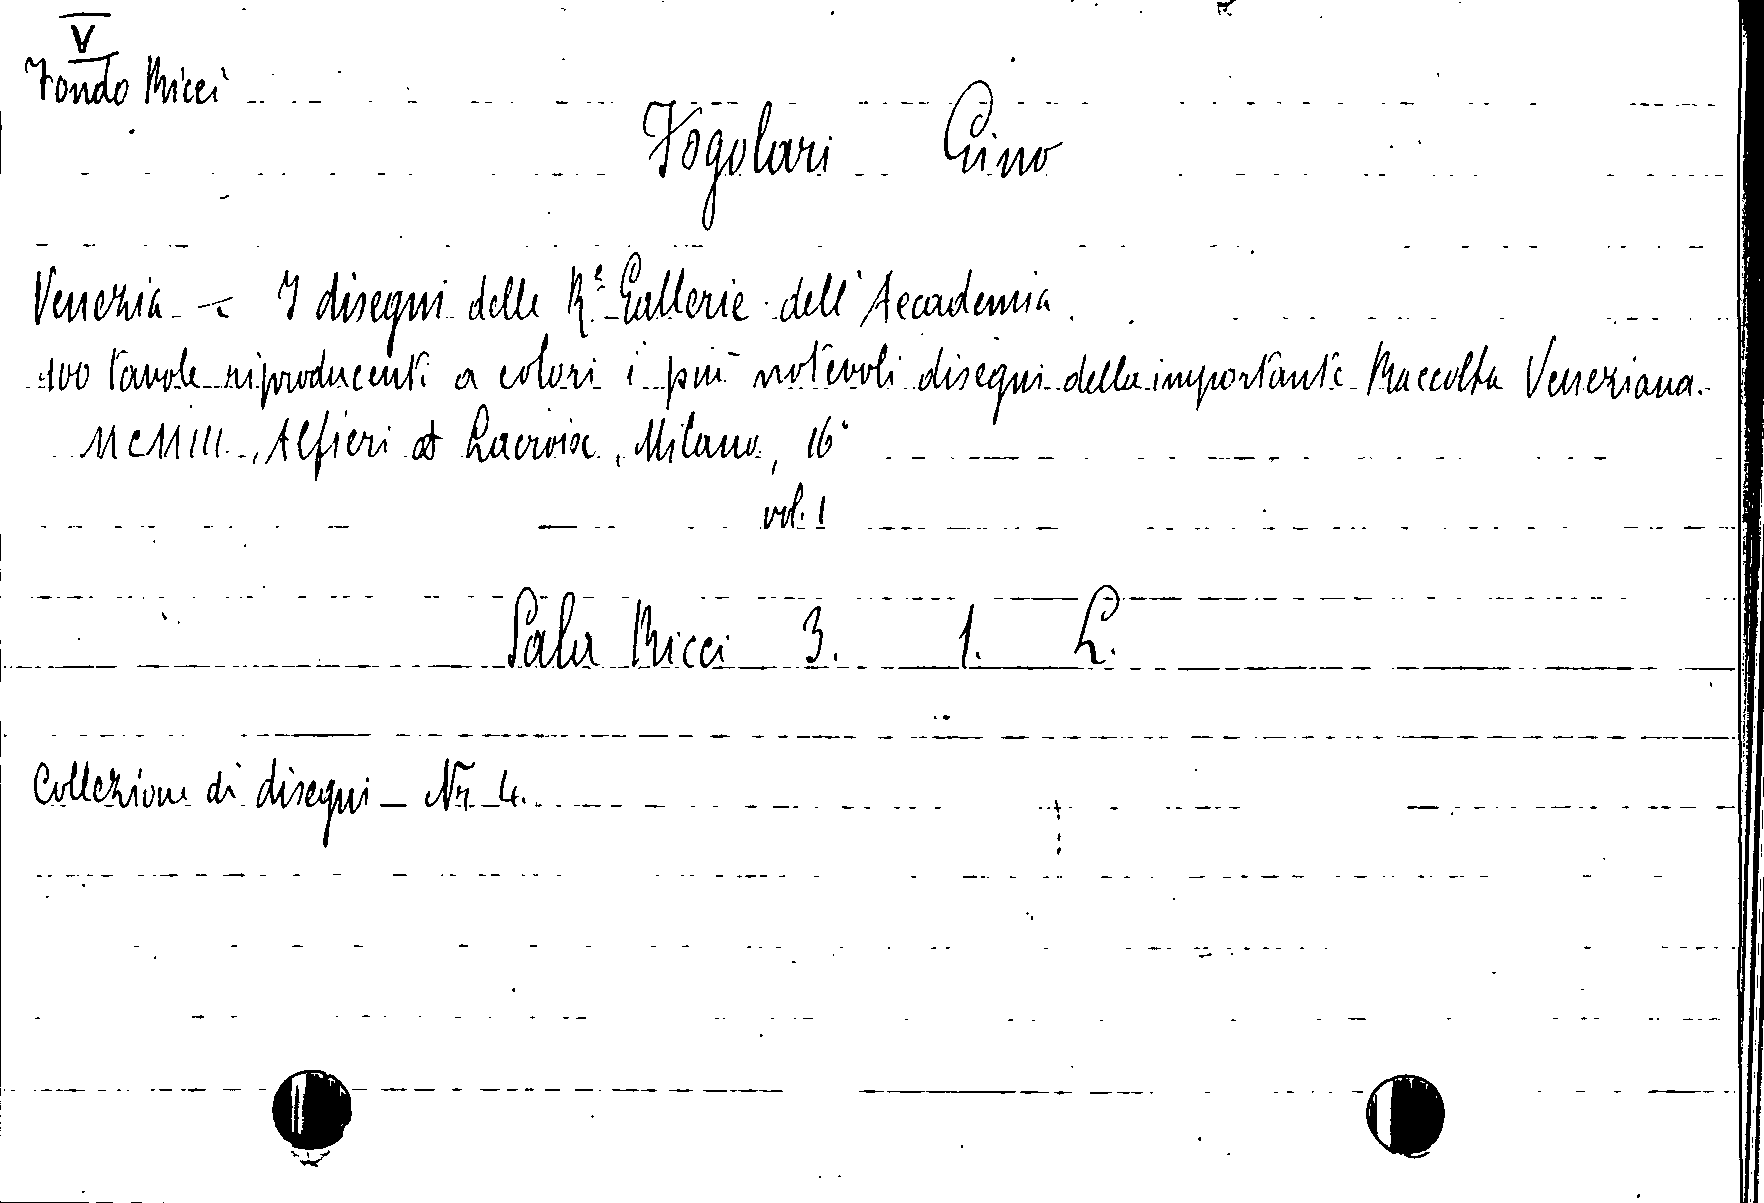 V
Fondo Ricci
Fogolari Gino
Venezia - I disegni delle R.e Gallerie dell'Accademia.
100 tavole riproducenti a colori i più notevoli disegni della importante Raccolta Veneziana.
MCMIII, Alfieri et Lacroix, Milano, 16°
vol. 1
Sala Ricci 3. 1. L.
Collezione di disegni - Nr 4.